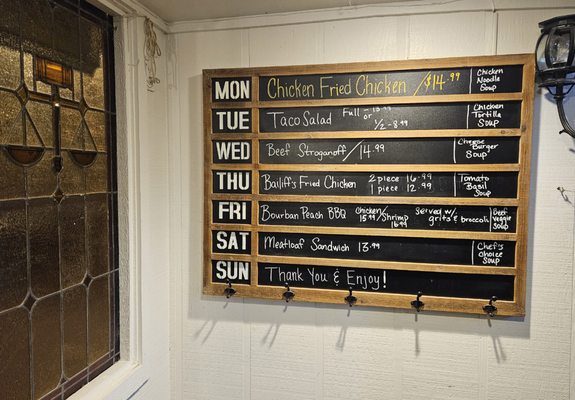 MON Chicken Fried Chicken /$14.99 Chicken
Noodle
Soup
TUE Taco Salad Full - 13.99
or
1/2 - 8.99 Chicken
Tortilla
Soup
WED Beef Stroganoff / 14.99 Cheese
Burger
Soup
THU Bailiff's Fried Chicken 2 piece 16.99
1 piece 12.99 Tomato
Basil
Soup
FRI Bourban Peach BBQ Chicken/Shrimp
15.99 16.99 Served w/
grits & broccoli Beef
Veggie
Soup
SAT Meatloaf Sandwich 13.99 Chef's
Choice
Soup
SUN Thank You & Enjoy!